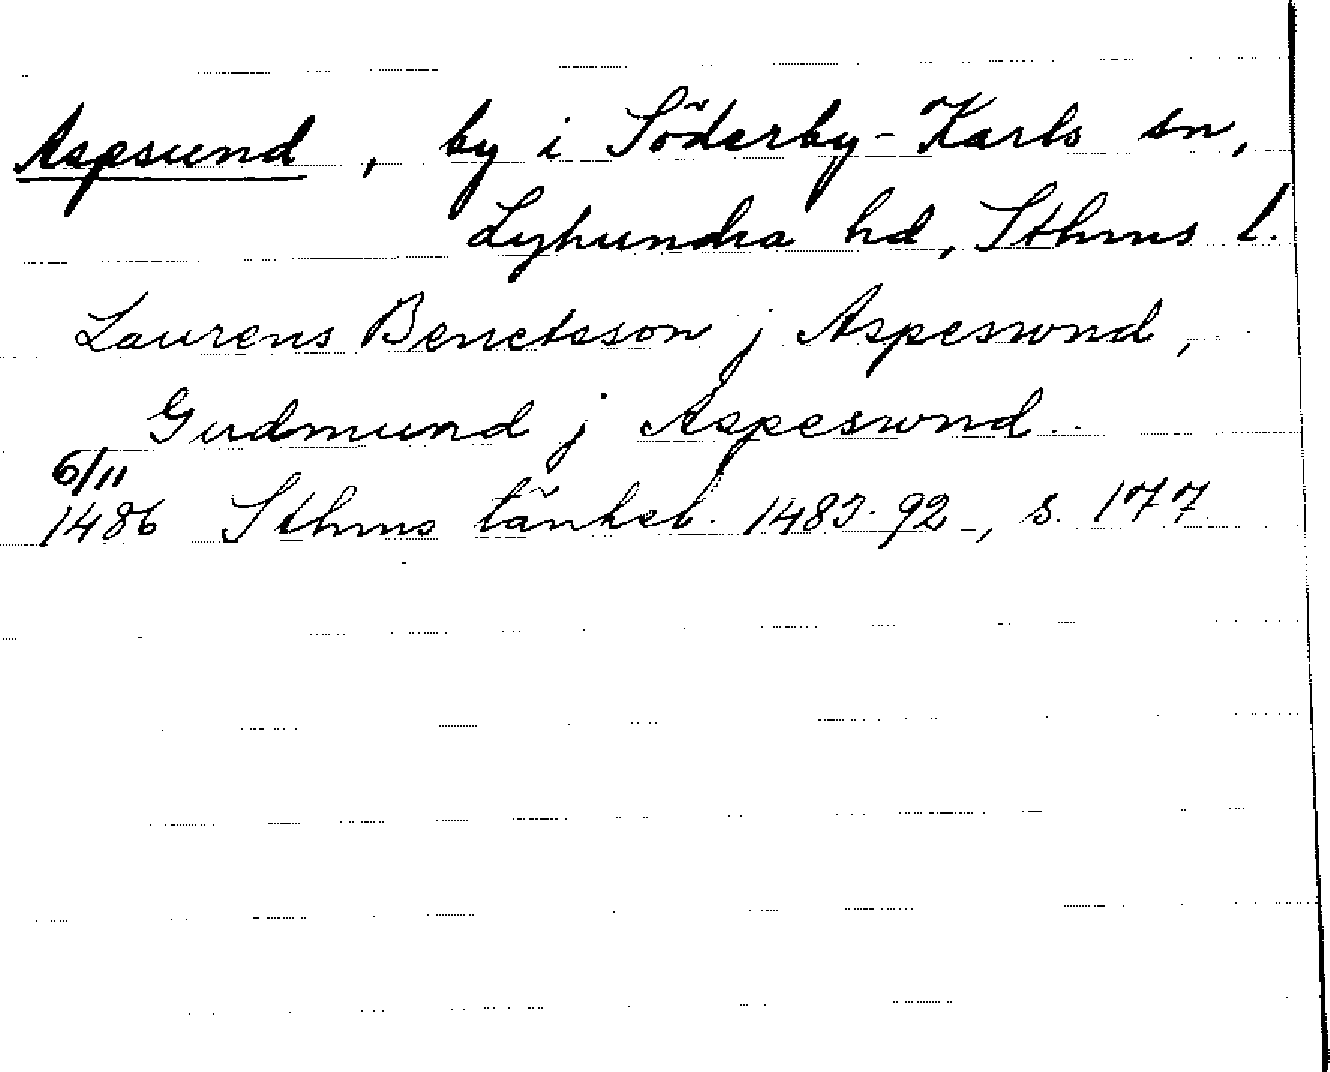 Aspsund, by i Söderby-Karls sn,
Lyhundra hd, Sthms l.
Laurens Benctsson j Aspeswnd,
Gudmund j Aspeswnd..
6/11
1486 Sthms tänkeb. 1483-92, s. 177